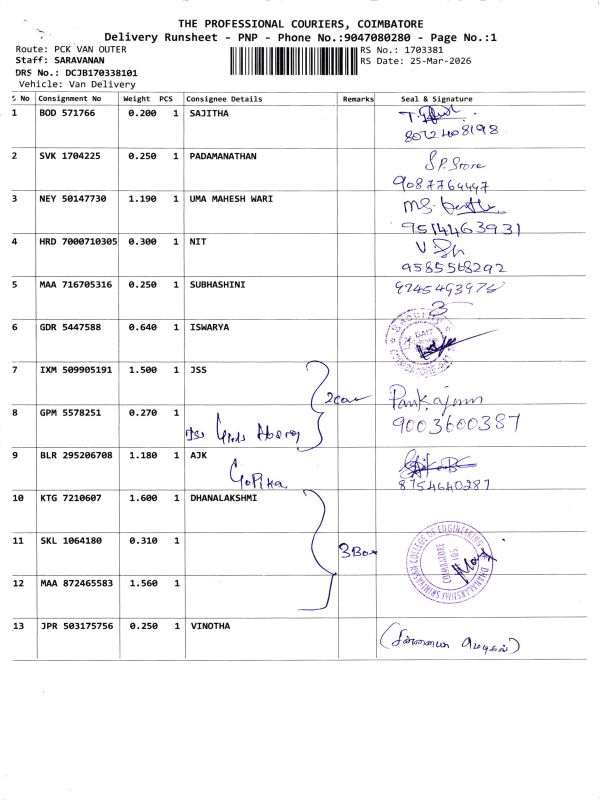 THE PROFESSIONAL COURIERS, COIMBATORE
Delivery Runsheet - PNP - Phone No.:9047080280 - Page No.:1
Route: PCK VAN OUTER
RS No.: 1703381
Staff: SARAVANAN
RS Date: 25-Mar-2026
DRS No.: DCJB170338101
Vehicle: Van Delivery
S No Consignment No Weight PCS Consignee Details Remarks Seal & Signature
1 BOD 571766 0.200 1 SAJITHA
8072408198
2 SVK 1704225 0.250 1 PADAMANATHAN S.P. Store
9087764447
3 NEY 50147730 1.190 1 UMA MAHESH WARI
9514463931
4 HRD 7000710305 0.300 1 NIT
9585568292
5 MAA 716705316 0.250 1 SUBHASHINI
6 GDR 5447588 0.640 1 ISWARYA
7 IXM 509905191 1.500 1 JSS
8 GPM 5578251 0.270 1
9003600387
9 BLR 295206708 1.180 1 AJK
Gopika
8754640287
10 KTG 7210607 1.600 1 DHANALAKSHMI
11 SKL 1064180 0.310 1 3 Box
DHANALAKSHMI SRINIVASAN COLLEGE OF ENGINEERING
COIMBATORE
12 MAA 872465583 1.560 1
13 JPR 503175756 0.250 1 VINOTHA